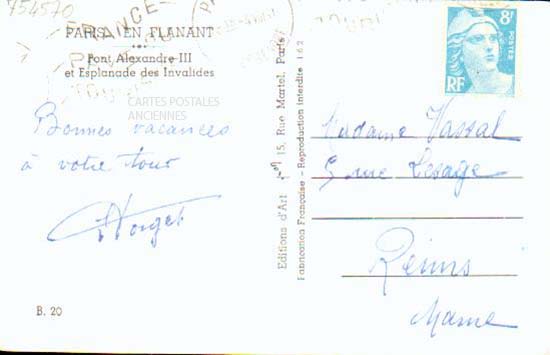 754570
PARIS... EN FLANANT
Pont Alexandre III
et Esplanade des Invalides
CARTES POSTALES
ANCIENNES
Bonnes vacances
à votre tour
B. 20
Editions d'Art
15, Rue Martel, Paris
Fabrication Française - Reproduction interdite 162
FRANCE
8F
POSTES
RF
Madame Vassal
5 rue Lesage
Reims
Marne